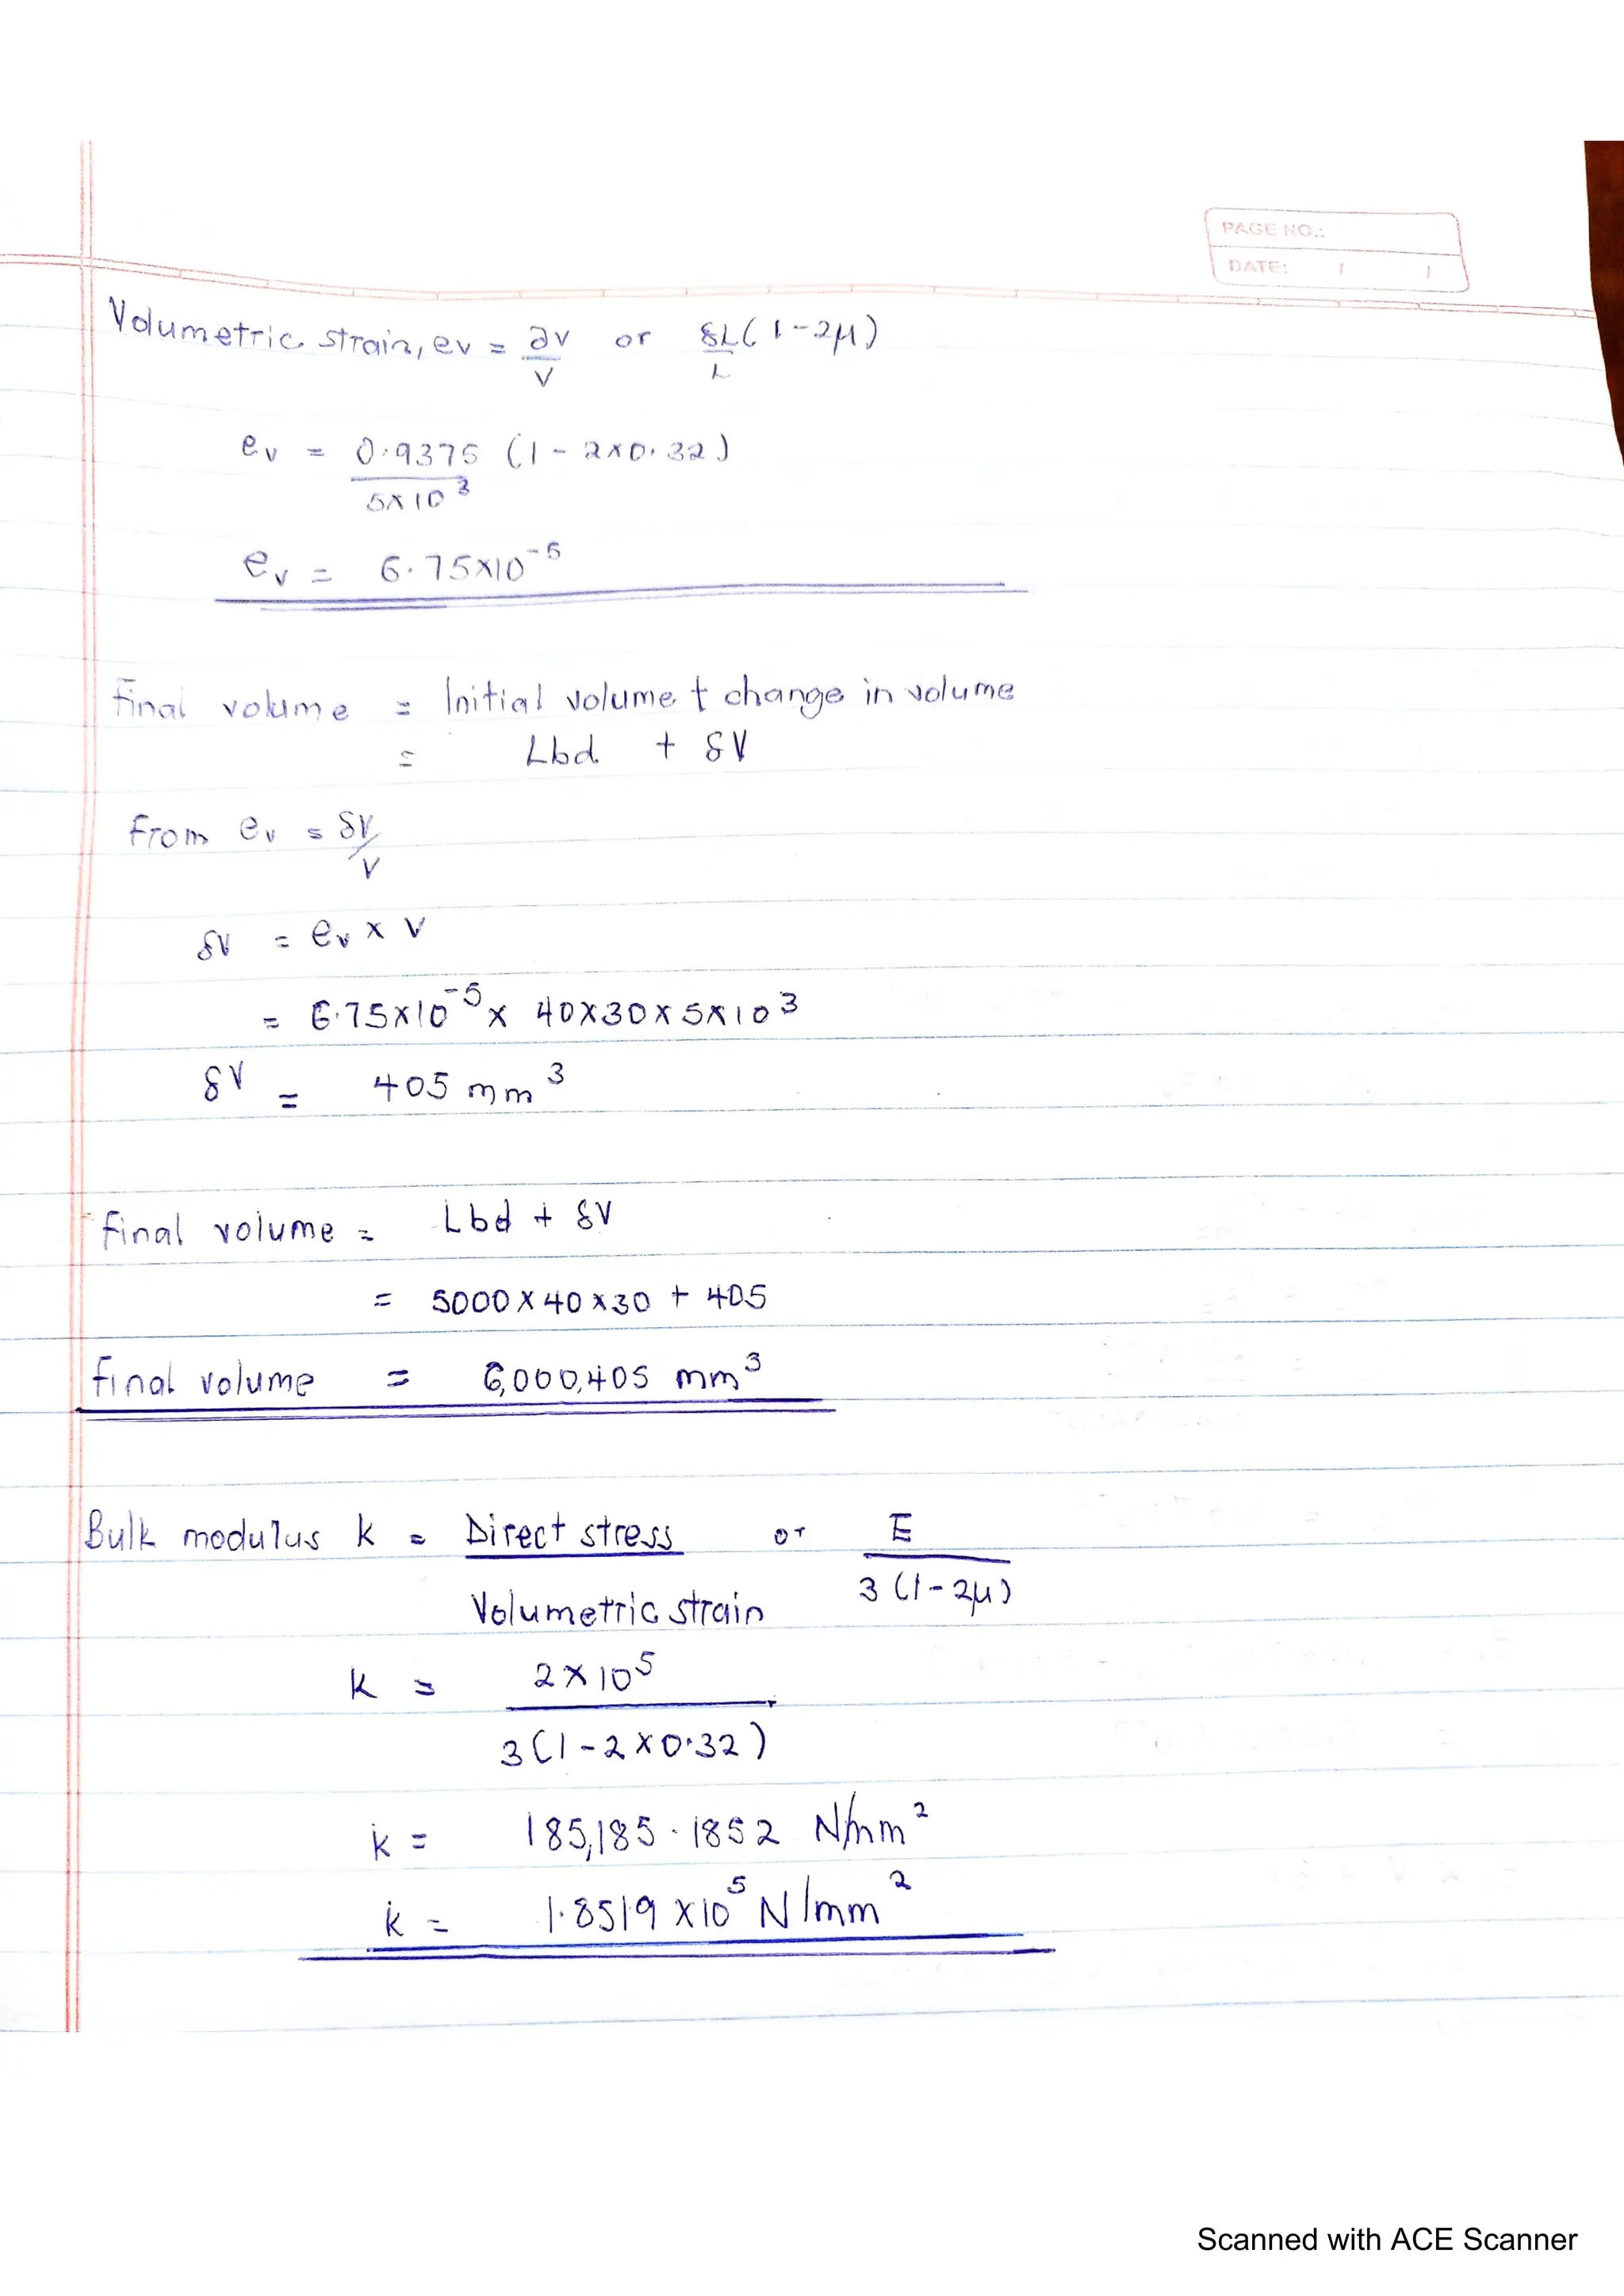 PAGE NO.:
DATE: / /
Volumetric strain, ev = ∂v/V or δL/L (1-2μ)
ev = 0.9375/5×10³ (1 - 2×0.32)
ev = 6.75×10⁻⁵
Final volume = Initial volume + change in volume
= Lbd + δV
From ev = δV/V
δV = ev × V
= 6.75×10⁻⁵ × 40×30×5×10³
δV = 405 mm³
Final volume = Lbd + δV
= 5000×40×30 + 405
Final volume = 6,000,405 mm³
Bulk modulus k = Direct stress/Volumetric strain or E/3(1-2μ)
k = 2×10⁵/3(1-2×0.32)
k = 185,185.1852 N/mm²
k = 1.8519×10⁵ N/mm²
Scanned with ACE Scanner